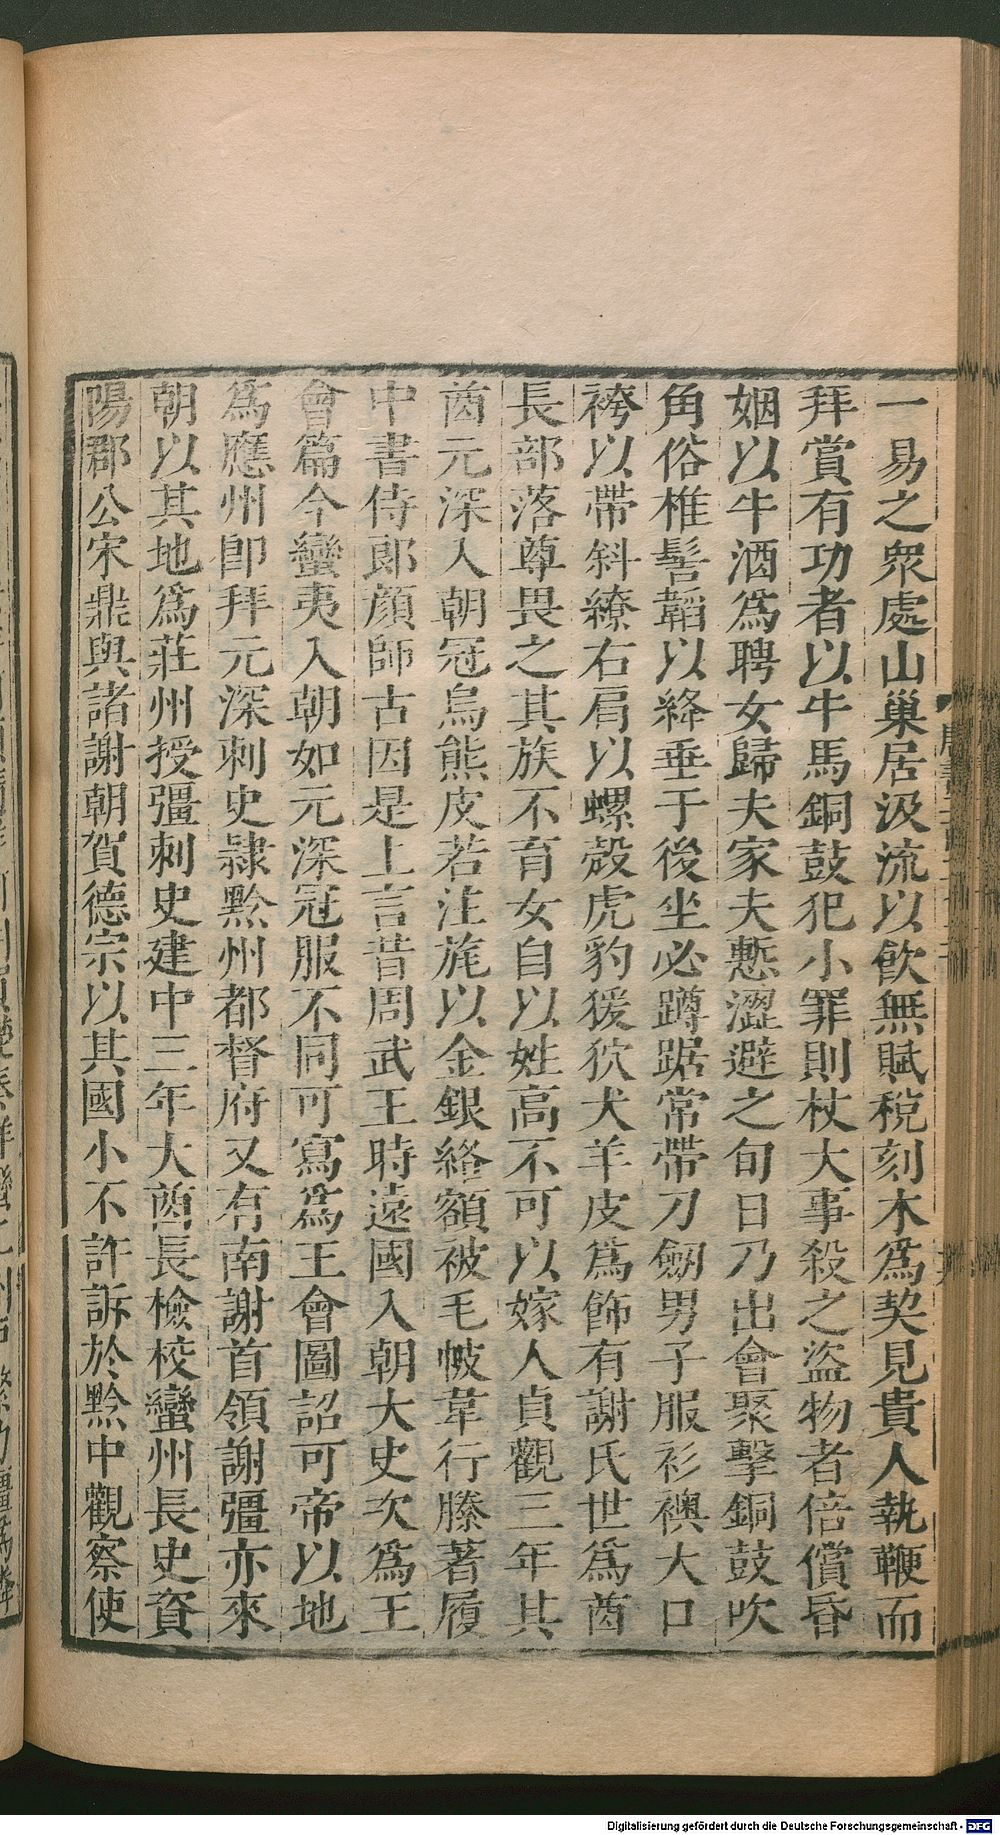 一易之衆處山巢居汲流以飮無賦稅刻木爲契見貴人執鞭而
拜賞有功者以牛馬銅鼓犯小罪則杖大事殺之盜物者倍償昏
姻以牛酒爲聘女歸夫家夫慙澀避之旬日乃出會聚擊銅鼓吹
角俗椎髻韜以絳垂于後坐必蹲踞常帶刀劒男子服衫襖大口
袴以帶斜繚右肩以螺殻虎豹猨狖犬羊皮爲飾有謝氏世爲酋
長部落尊畏之其族不育女自以姓高不可以嫁人貞觀三年其
酋元深入朝冠烏熊皮若注旄以金銀絡額被毛帔韋行縢著履
中書侍郎顔師古因是上言昔周武王時遠國入朝大史次爲王
會篇今蠻夷入朝如元深冠服不同可寫爲王會圖詔可帝以地
爲應州卽拜元深刺史隷黔州都督府又有南謝首領謝彊亦來
朝以其地爲莊州授彊刺史建中三年大酋長檢校蠻州長史資
陽郡公宋鼎與諸謝朝賀德宗以其國小不許訴於黔中觀察使
Digitalisierung gefördert durch die Deutsche Forschungsgemeinschaft - DFG